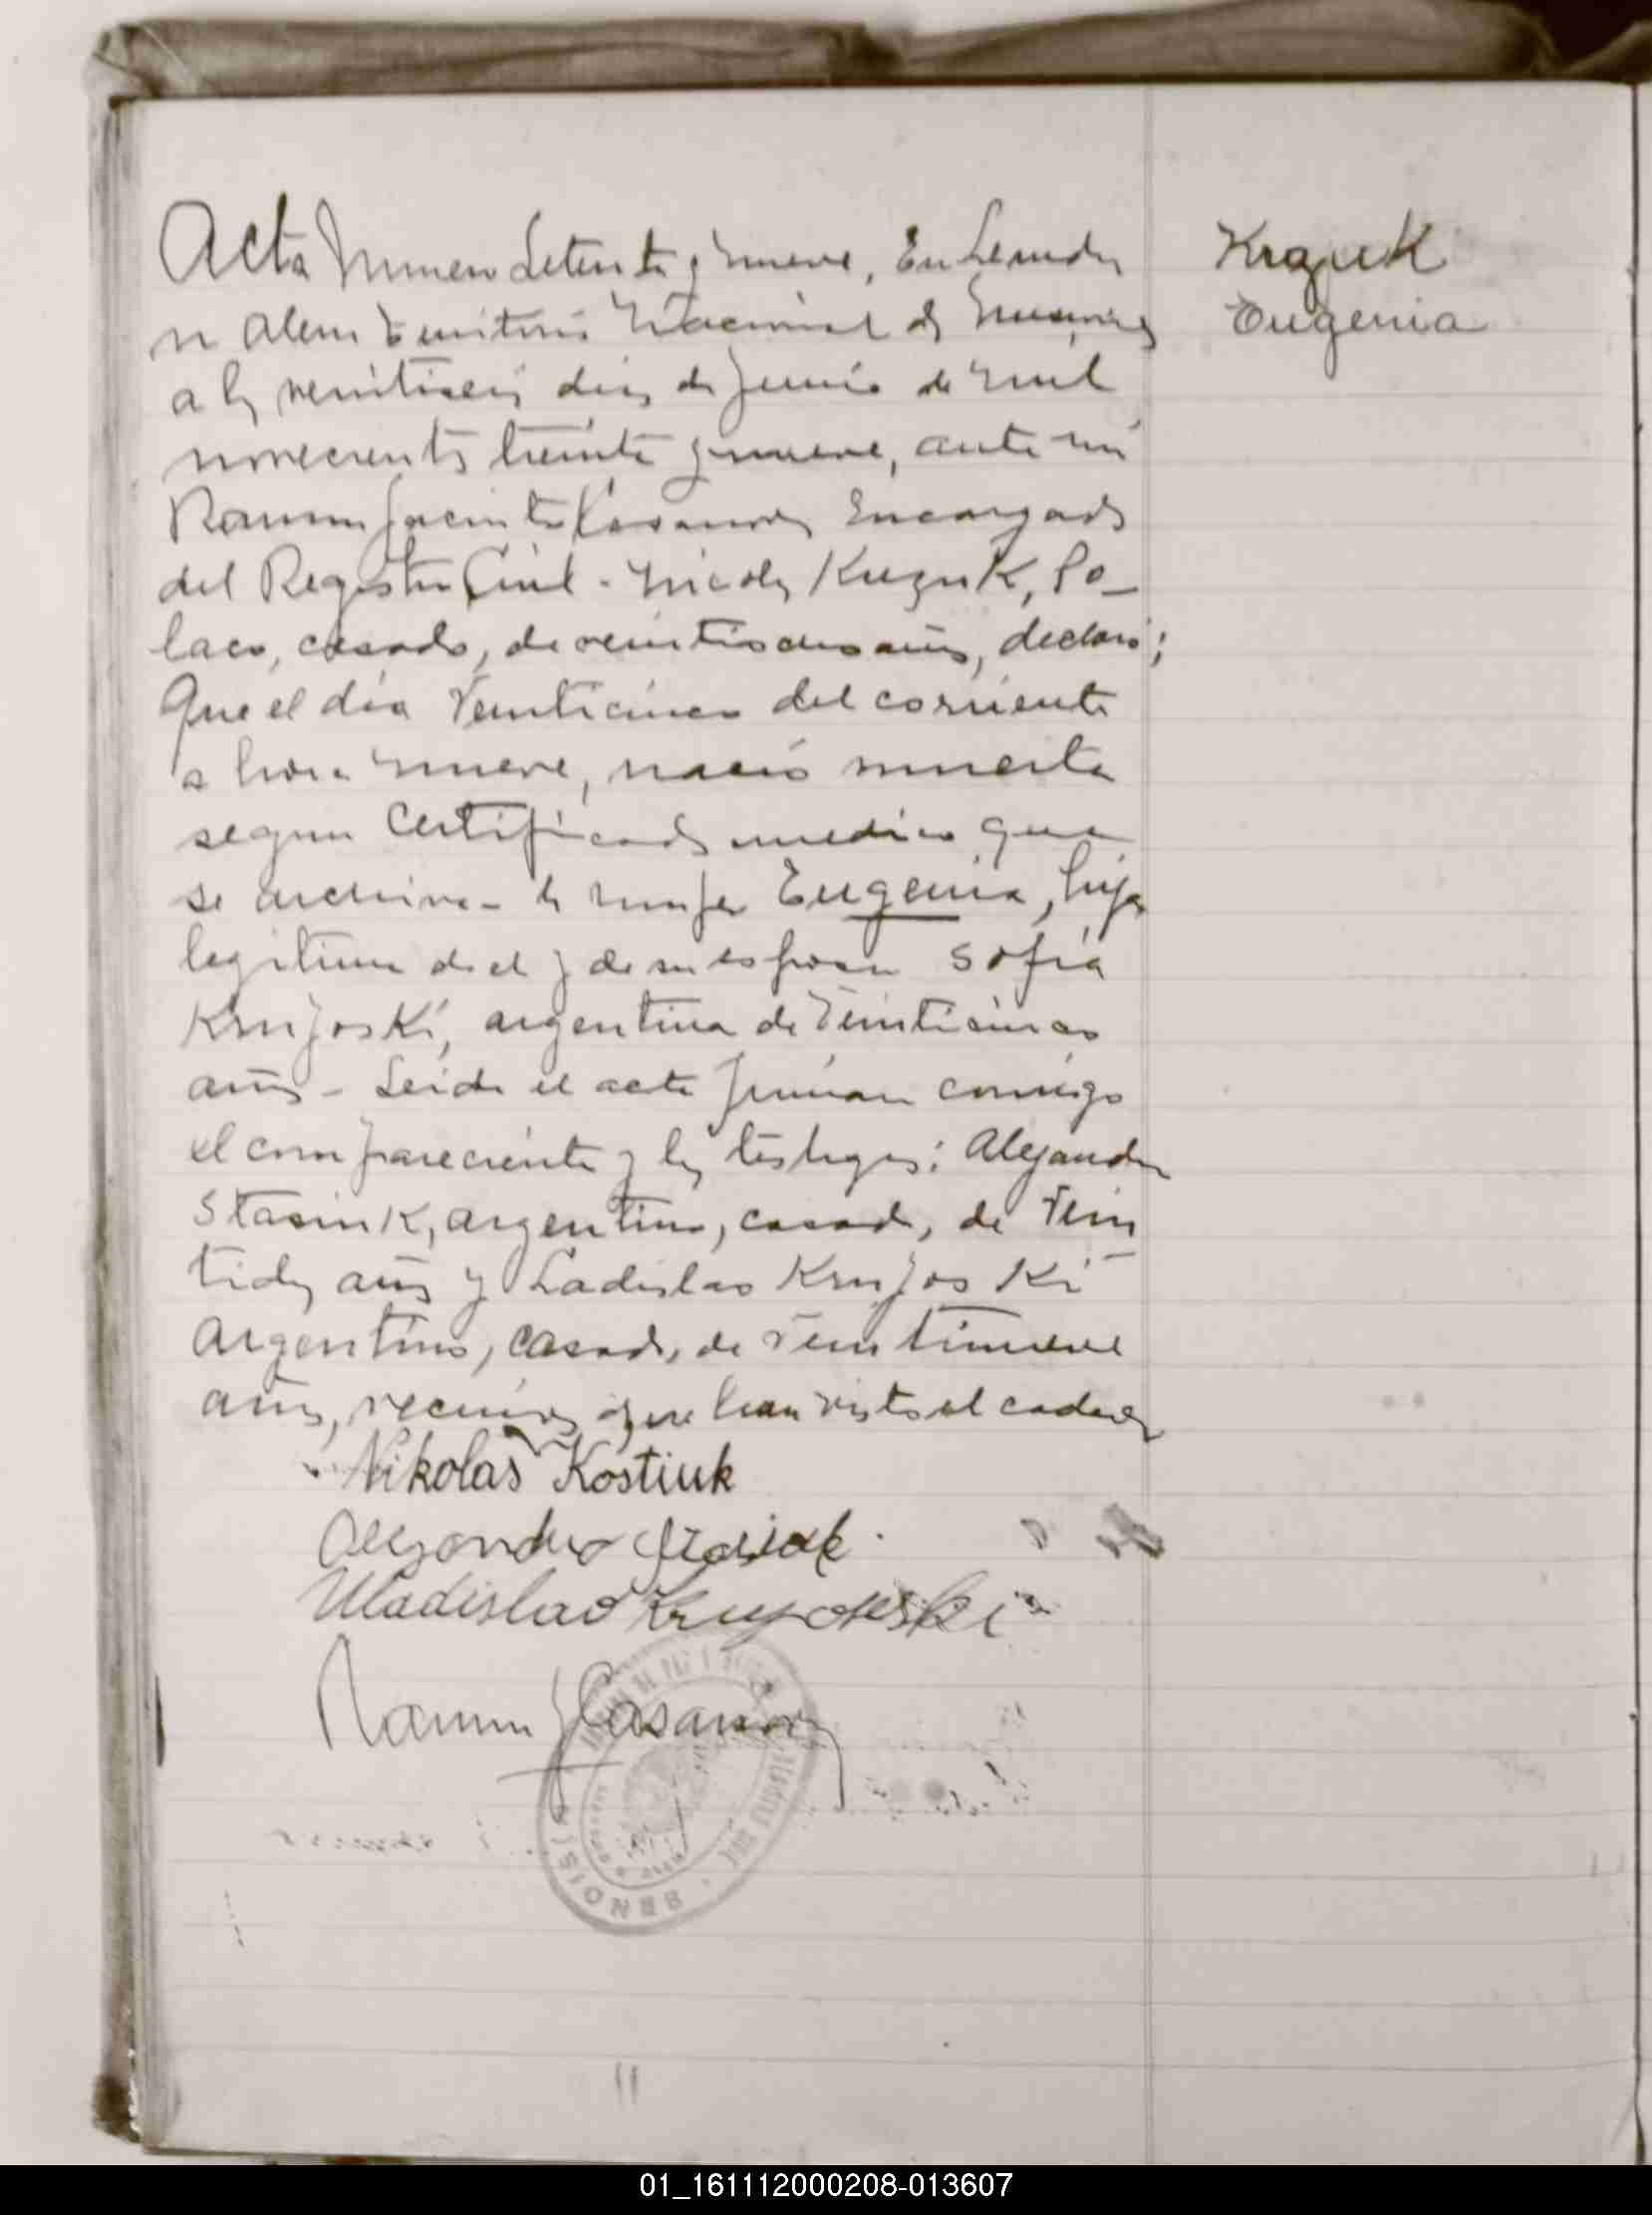 Acta Numero Setenta y nueve, En Leandro
N Alem Territorio Nacional de Misiones
a los veintiseis dias de Junio de mil
novecientos treinta y nueve, ante mi
Ramon Jacinto Casanova Encargado
del Registro Civil - Nicolas Kuzuk, Po-
laco, casado, de años, declaró:
Que el dia Veinticinco del corriente
a hora nueve, nació muerta
segun Certificado medico que
se archiva - la mujer Eugenia, hija
legitima de el y de su esposa Sofia
Krujoski, argentina de Veinticinco
años - Leida el acta firman conmigo
el compareciente y los testigos: Alejandro
Stasiuk, argentino, casado, de Vein
tidos años y Ladislao Krujoski
Argentino, casado, de Veintinueve
años, vecinos que han visto el cadaver
Nikolas Kostiuk
Alejandro Stasiuk
Uladislao Krujoski
Ramon J Casanova
MISIONES
Krazuk
Eugenia
01_161112000208-013607